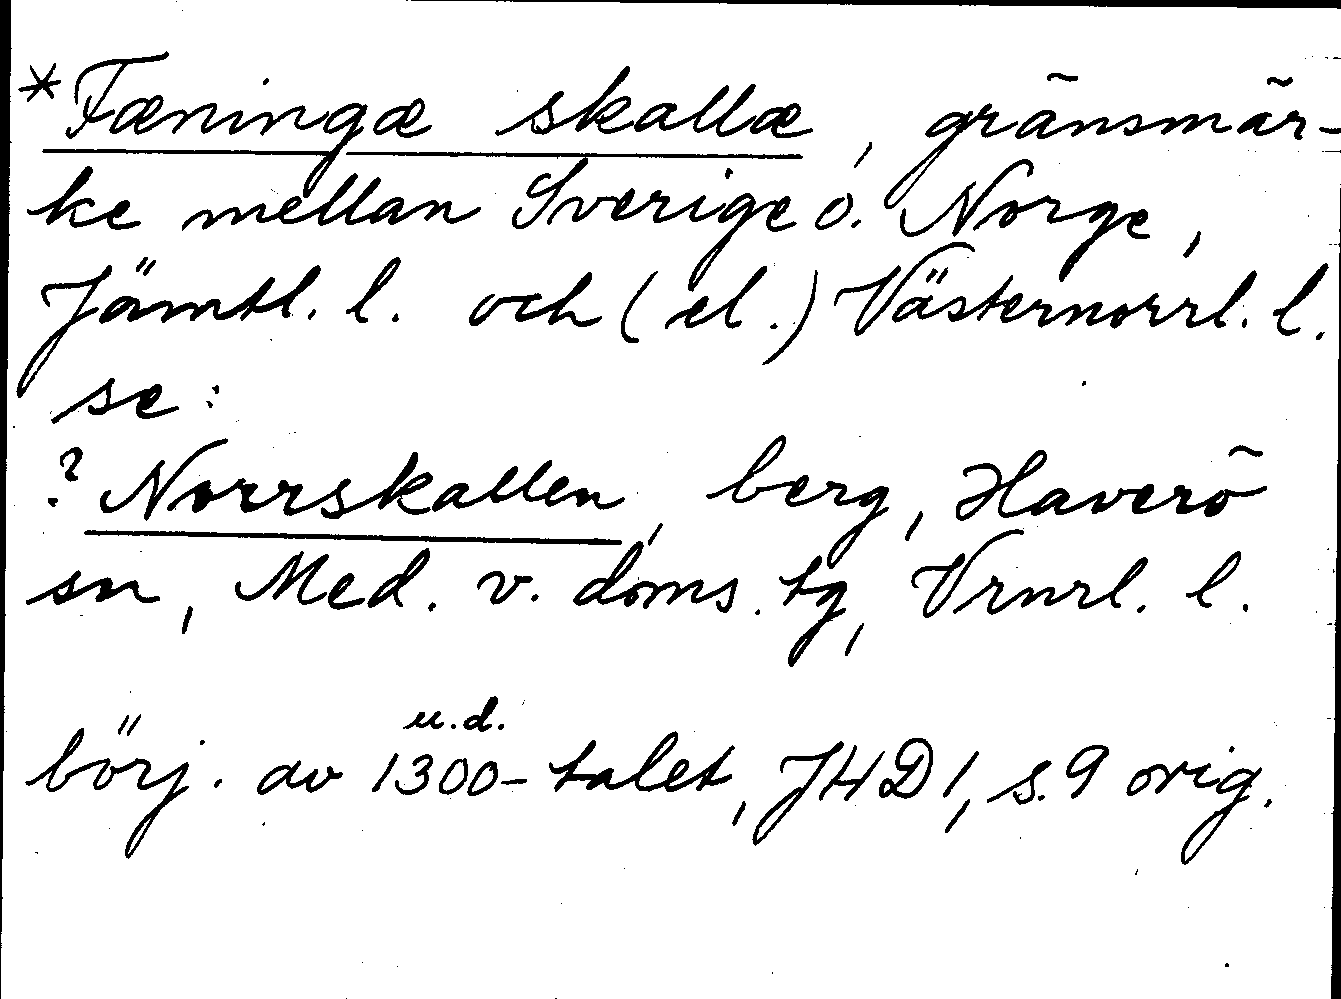 *Fæningæ skallæ, gränsmär-
ke mellan Sverige o. Norge,
Jämtl. l. och (el.) Västernorrl. l.
se:
? Norrskallen, berg, Haverö
sn, Med. v. doms. tg, Vrnrl. l.
u.d.
börj. av 1300-talet, JHD 1, s. 9 orig.